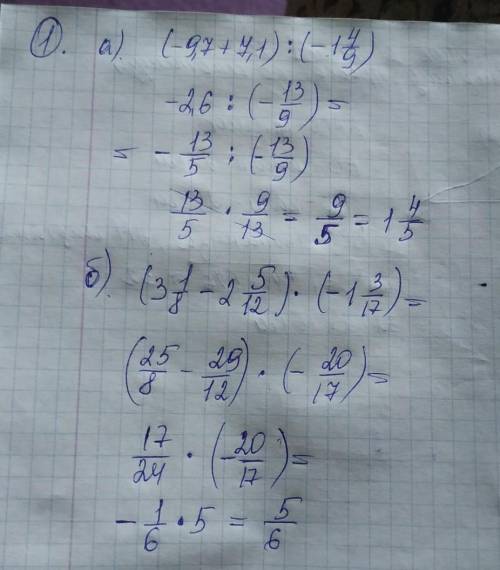 1. а). (-9,7 + 7,1) : (-1 4/9)
-2,6 : (-13/9) =
= -13/5 : (-13/9)
13/5 · 9/13 = 9/5 = 1 4/5
б). (3 1/8 - 2 5/12) · (-1 3/17) =
(25/8 - 29/12) · (-20/17) =
17/24 · (-20/17) =
-1/6 · 5 = 5/6